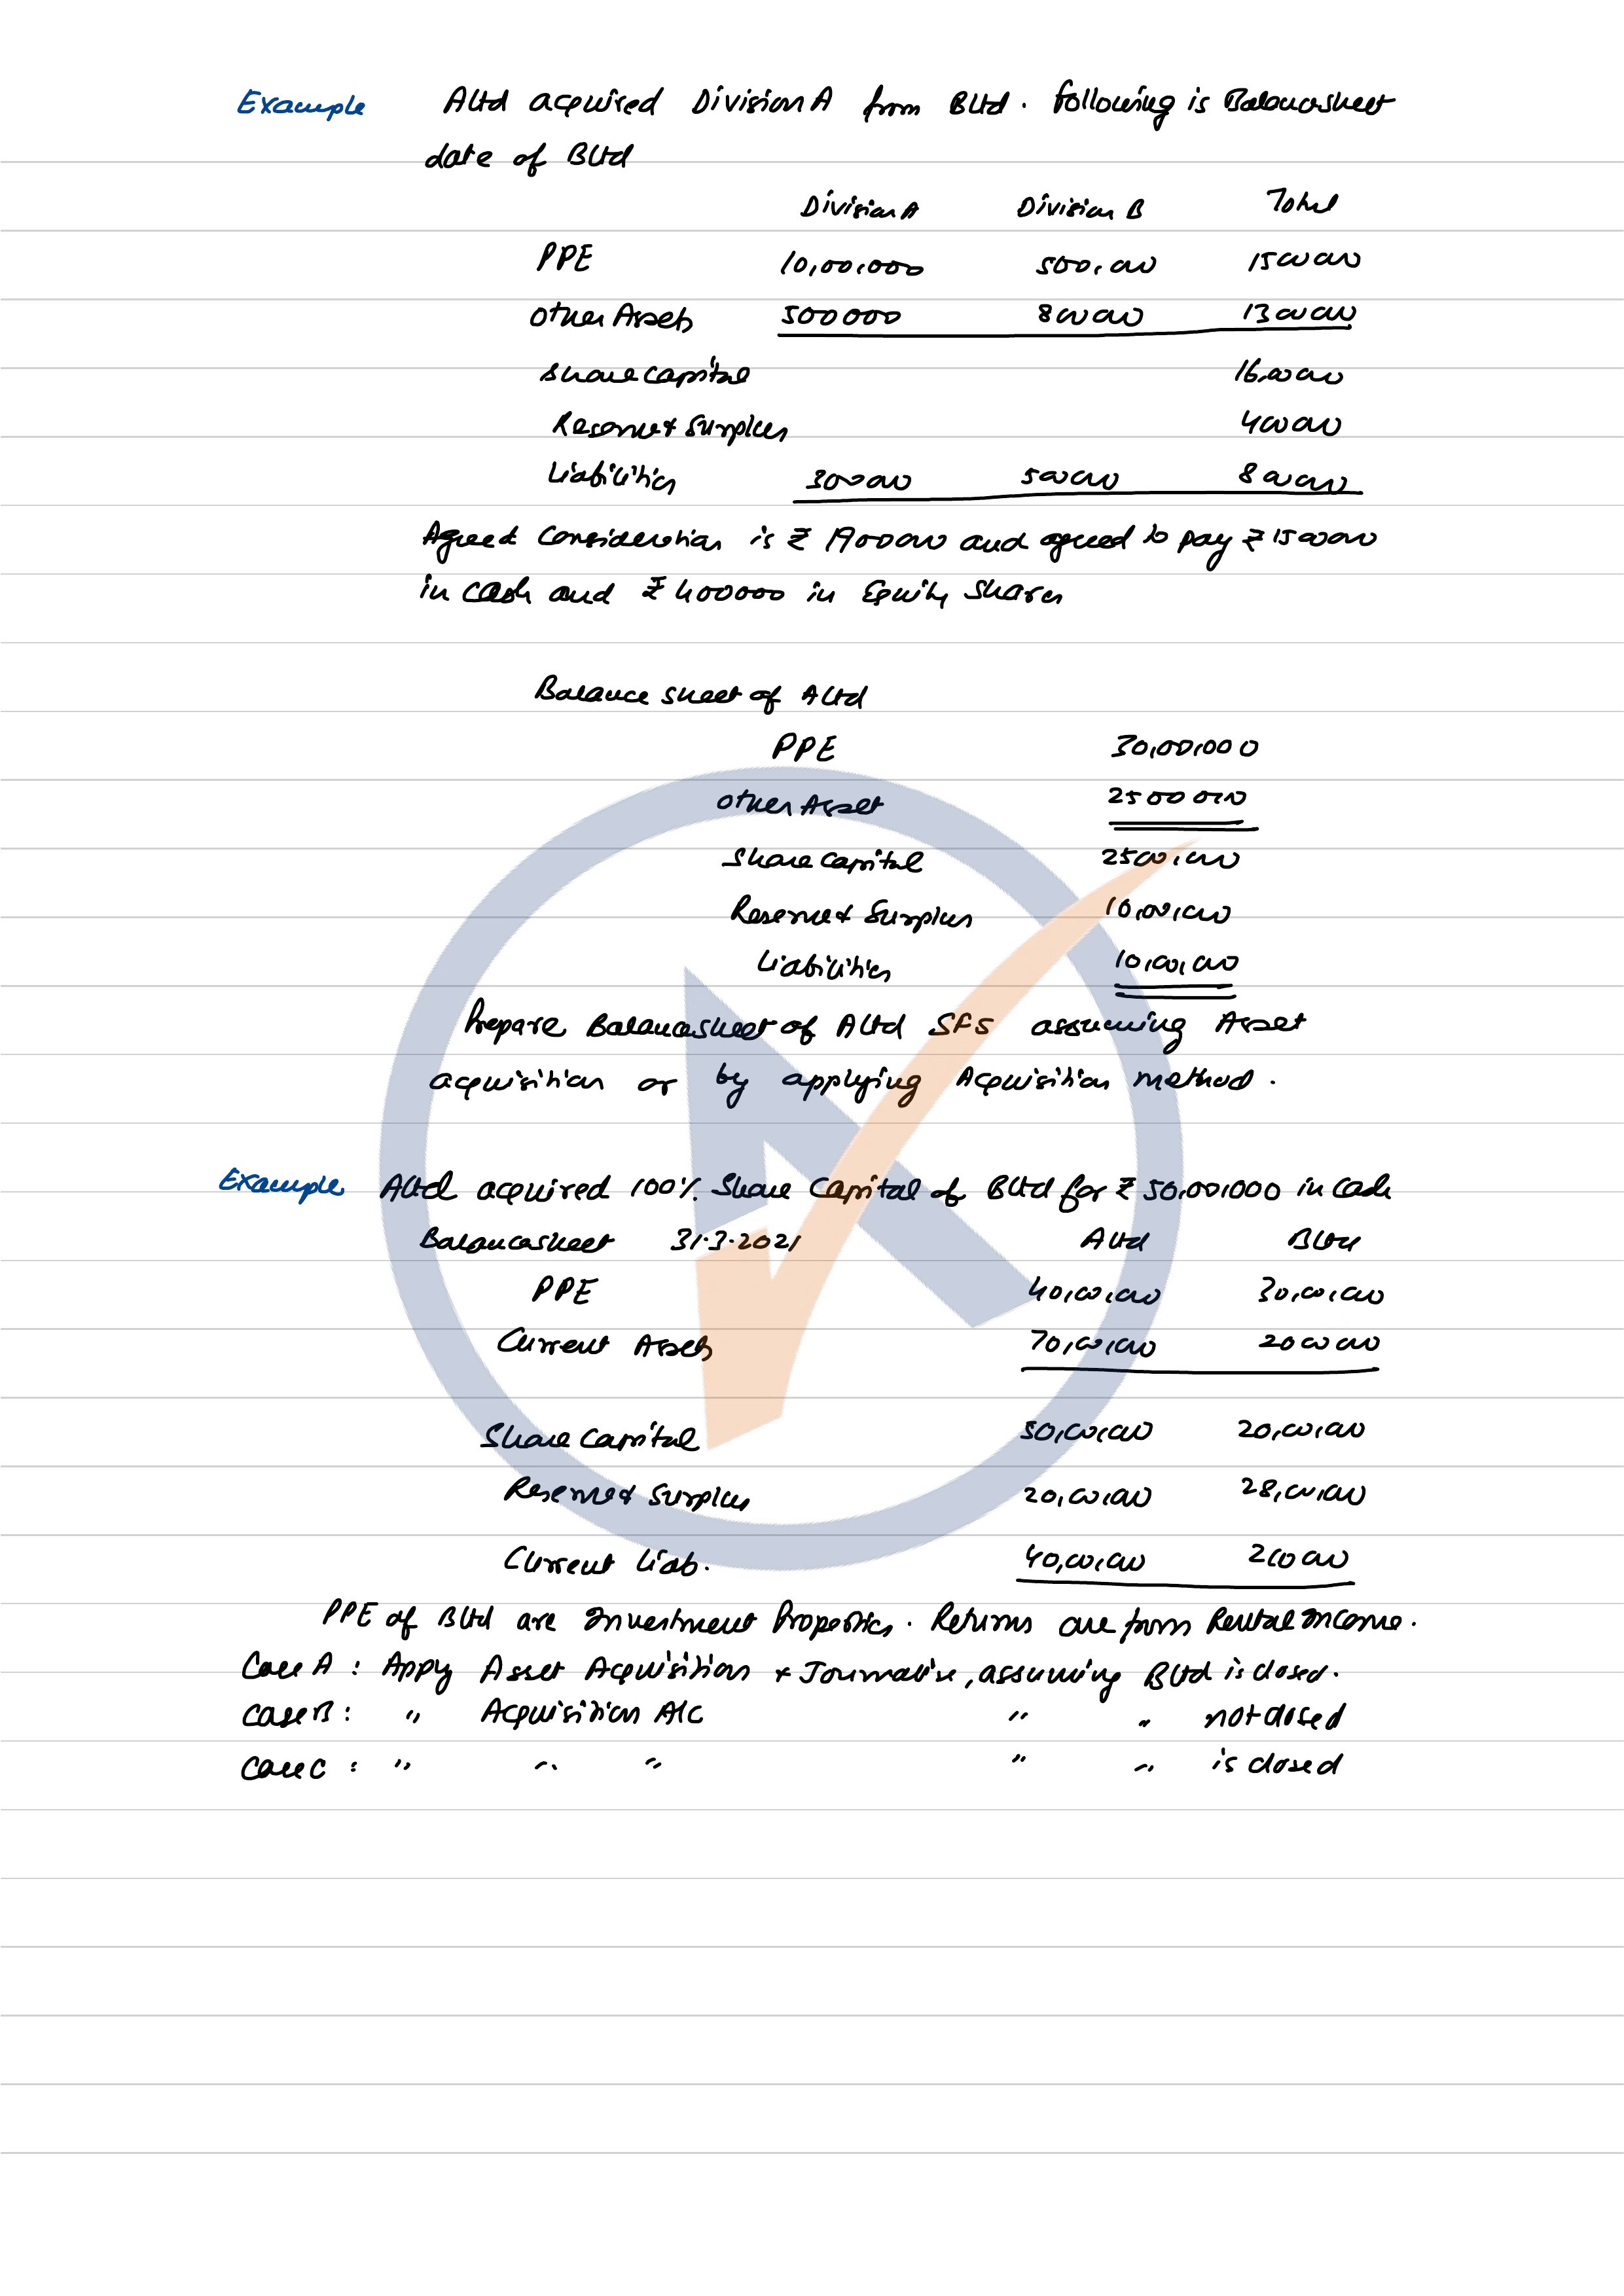 Example Altd acquired Division A from Bltd. Following is Balancesheet
date of Bltd
Division A Division B Total
PPE 10,00,000 500,000 1500000
Other Assets 500000 800000 1300000
Share Capital 16,00000
Reserve & Surplus 400000
Liabilities 300000 500000 800000
Agreed Consideration is ₹ 1900000 and agreed to pay ₹ 1500000
in cash and ₹ 400000 in Equity Shares
Balance sheet of Altd
PPE 30,00,000
Other Asset 2500000
Share Capital 2500,000
Reserve & Surplus 10,00,000
Liabilities 10,00,000
Prepare Balancesheet of Altd SFS assuming Asset
acquisition or by applying Acquisition method.
Example Altd acquired 100% Share Capital of Bltd for ₹ 50,00,000 in cash
Balancesheet 31.3.2021 Altd Bltd
PPE 40,00,000 30,00,000
Current Assets 70,00,000 2000000
Share Capital 50,00,000 20,00,000
Reserve & Surplus 20,00,000 28,00,000
Current Liab. 40,00,000 200000
PPE of Bltd are Investment Properties. Returns are from Rental Income.
Case A : Apply Asset Acquisition & Journalise, assuming Bltd is closed.
Case B : " Acquisition A/c " " not closed
Case C : " " " " " is closed